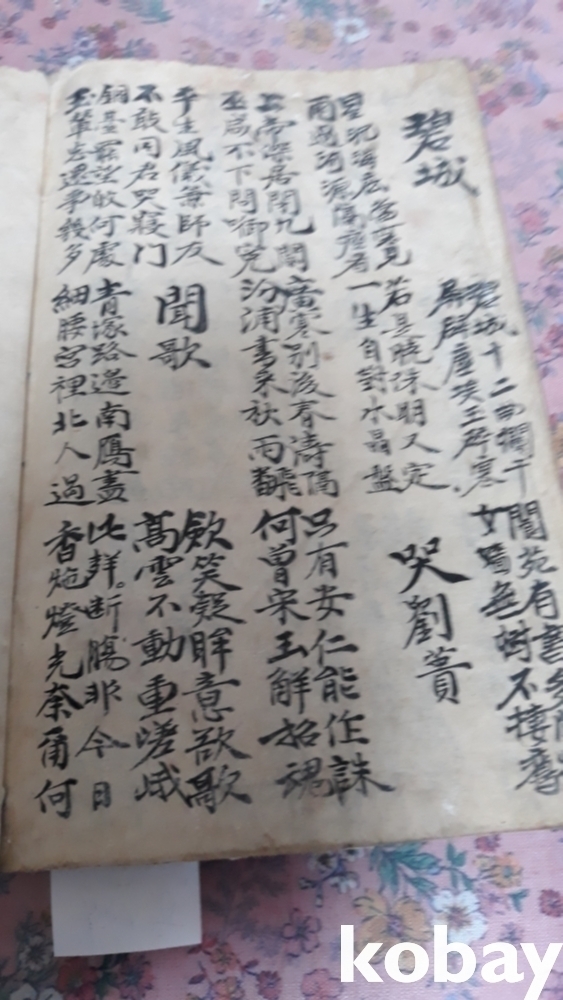 碧城
碧城十二曲欄干
閬苑有書多附
犀辟塵埃玉辟寒
女無樹不接
星沉海底當窓見
若是曉珠明又定
雨過河源隔座看
一生自對水晶盤
哭劉蕡
上帝深居閉九閽
廣寒別後春濤隔
只有安仁能作誄
巫咸不下問啣冤
汾浦書來秋雨飜
何曾宋玉解招魂
平生風儀兼師友
不敢同君哭寢門
聞歌
歛笑疑眸意欲歌
高雲不動重嵯峨
銅臺罷望歸何處
玉輦忘還事幾多
青塚路邊南鴈盡
細腰宮裡北人過
此聲斷膓非今日
香灺燈光奈爾何
kobay